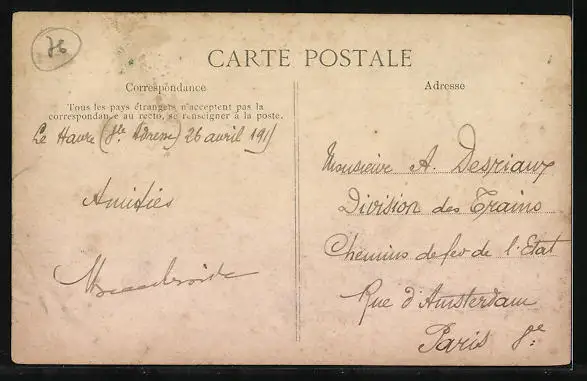 76
CARTE POSTALE
Correspondance
Tous les pays étrangers n'acceptent pas la
correspondance au recto, se renseigner à la poste.
Le Havre (Ste Adresse) 26 avril 1911
Amitiés
Adresse
Monsieur A. Desriaux
Division des Trains
Chemins de fer de l'Etat
Rue d'Amsterdam
Paris 8e